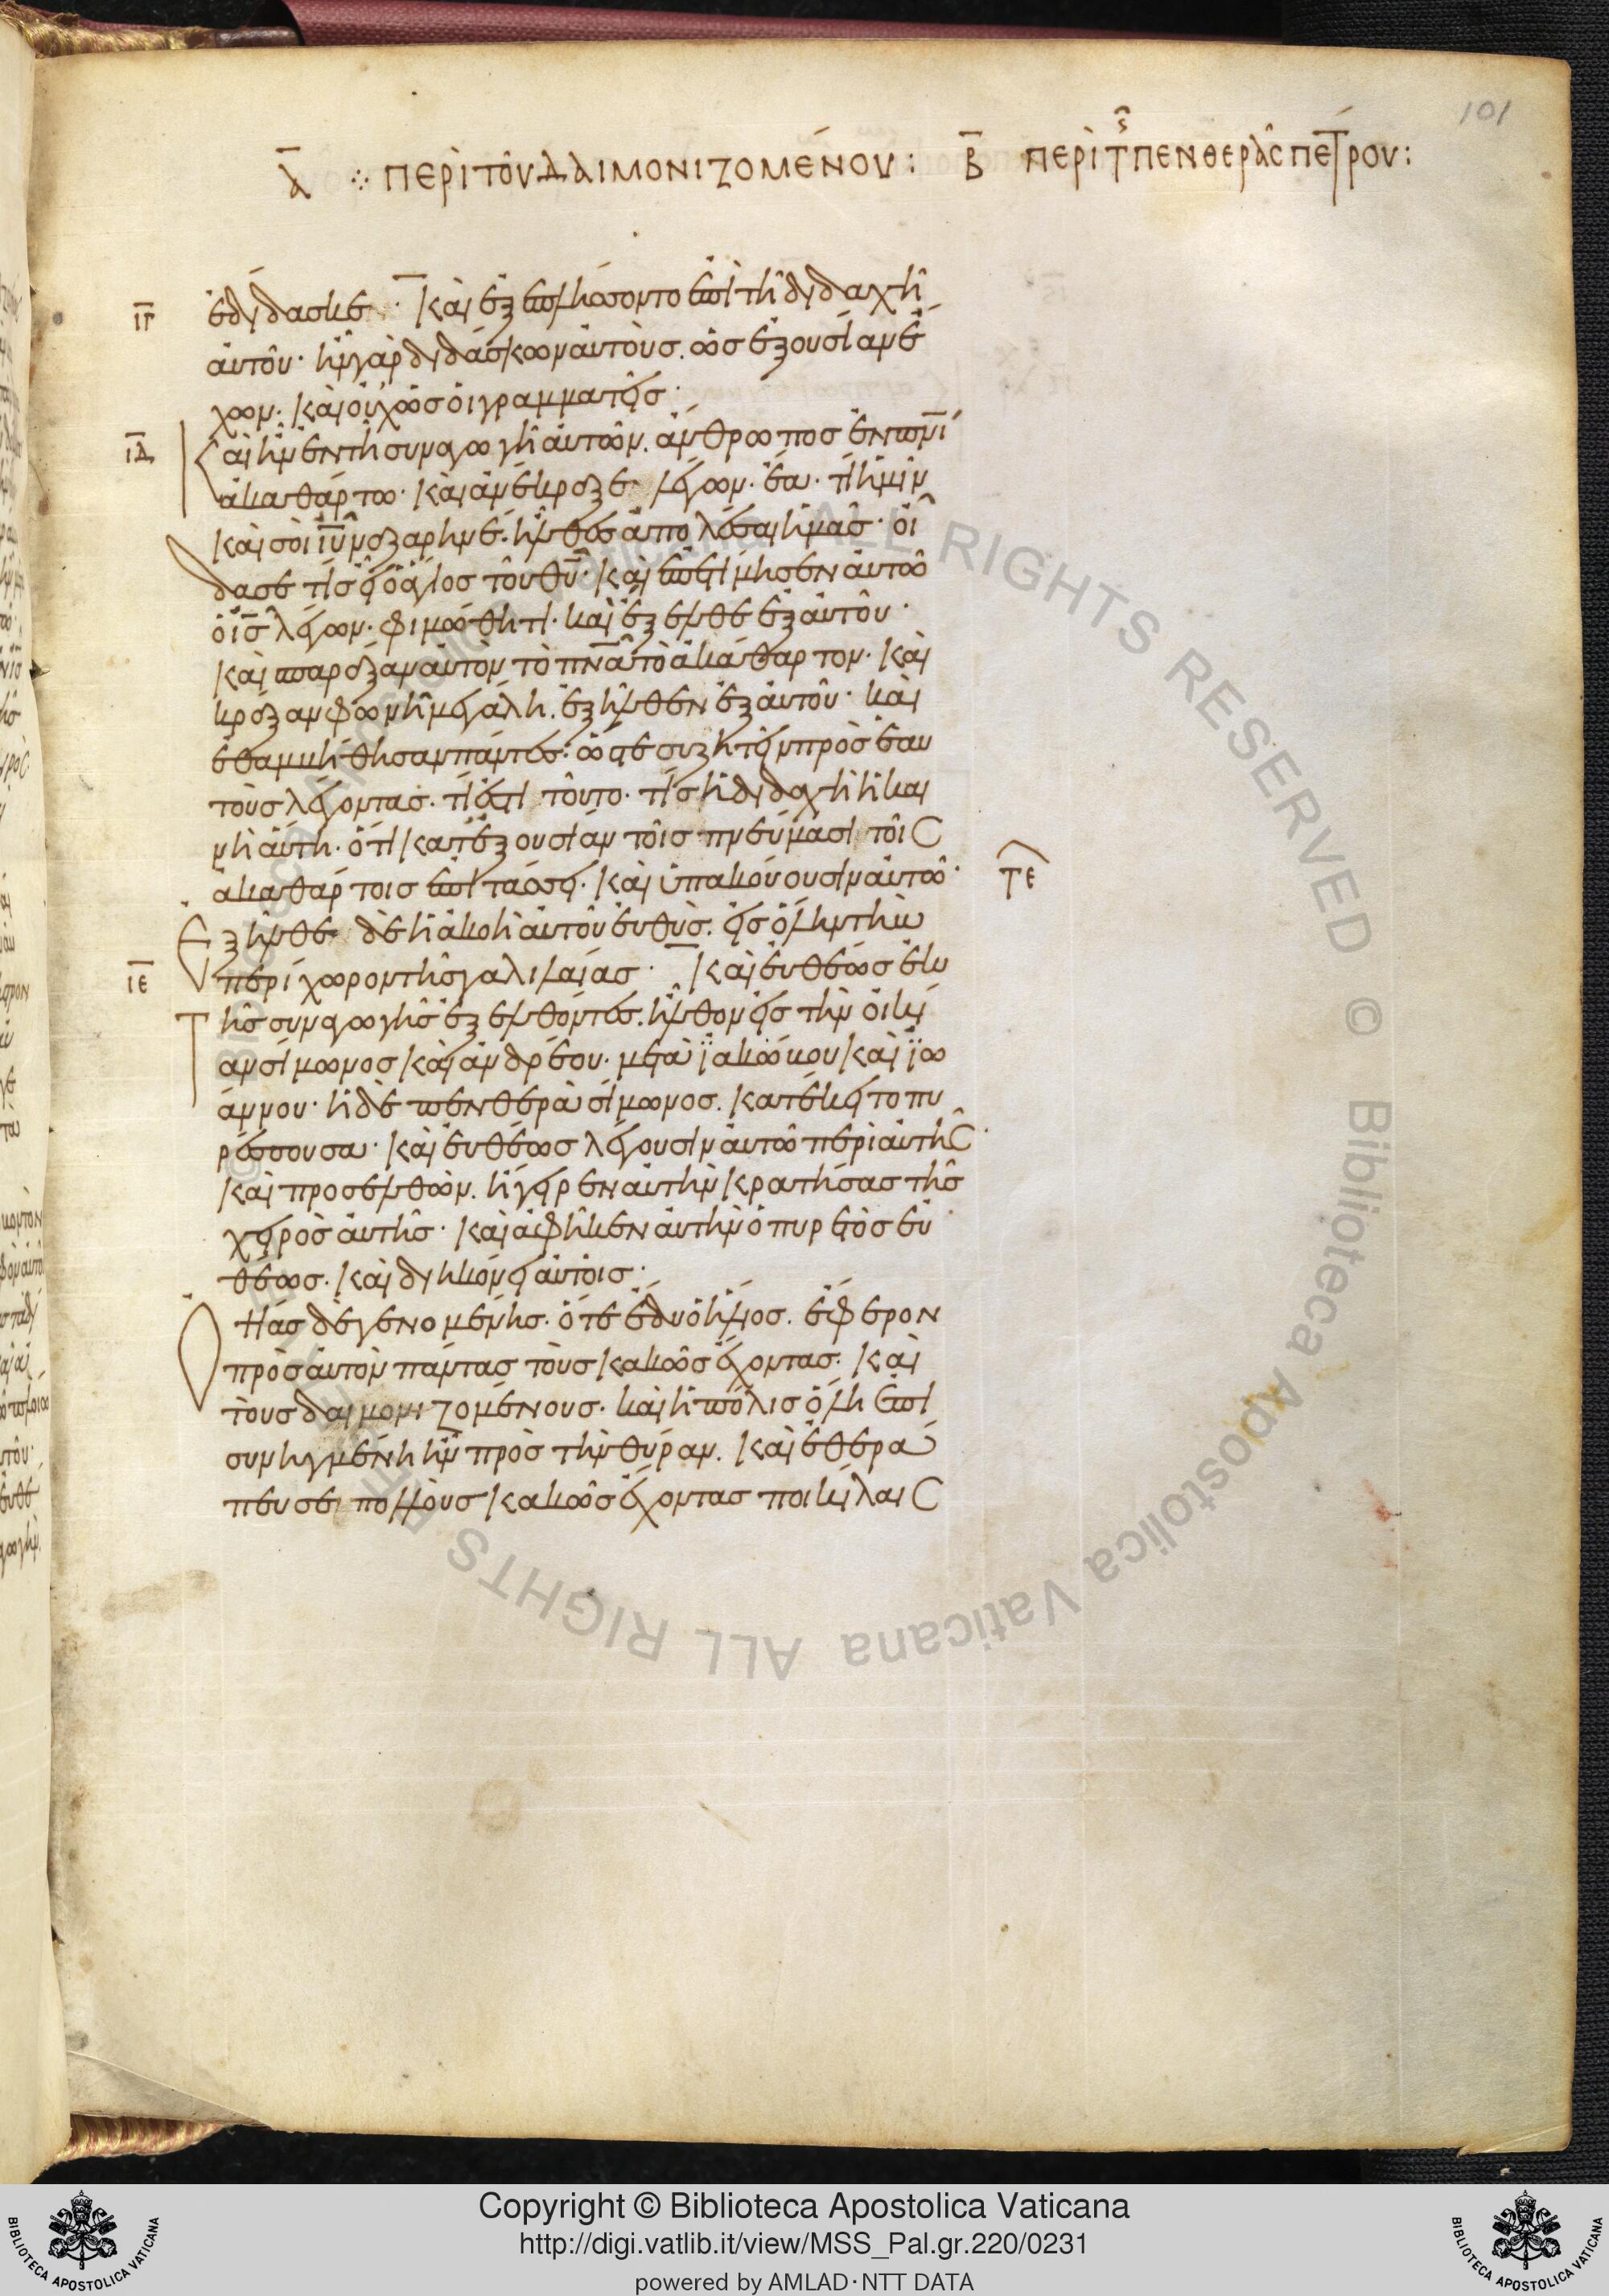 101
Α ⁘ ΠΕΡῚ ΤΟΥ͂ ΔΑΙΜΟΝΙΖΟΜΈΝΟΥ: Β ΠΕΡῚ Τῆς ΠΕΝΘΕΡΑ͂Σ ΠΈΤΡΟΥ:
ιγ ἐδίδασκε· καὶ ἐξεπλήσσοντο ἐπὶ τῆ διδαχῆ
αὐτοῦ· ἦν γὰρ διδάσκων αὐτοὺς. ὡς ἐξουσίαν ἔ
χων. καὶ οὐχ ὡς οἱ γραμματεῖς·
ιδ Καὶ ἦν ἐν τῆ συναγωγῆ αὐτῶν. ἄνθρωπος ἐν πνι
ἀκαθάρτω· καὶ ἀνέκραξε λέγων. ἔα. τί ἡμῖν
καὶ σοὶ ιυ ναζαρηνέ. ἦλθες ἀπολέσαι ἡμᾶς· οἶ
δασε τίς εἶ ὁ ἅγιος τοῦ θυ· καὶ ἐπετίμησεν αὐτῶ
ὁ ις λέγων. φιμώθητι. καὶ ἔξελθε ἐξ αὐτοῦ·
καὶ σπαράξαν αὐτὸν τὸ πνα τὸ ἀκάθαρτον. καὶ
κράξαν φωνῆ μεγάλη. ἐξῆλθεν ἐξ αὐτοῦ· καὶ
ἐθαμβήθησαν πάντες: ὥστε συζητεῖν πρὸς ἑαυ
τοὺς λέγοντας. τί ἐστι τοῦτο. τίς ἡ διδαχὴ ἡ και
νὴ αὕτη. ὅτι κατ' ἐξουσίαν τοῖς πνεύμασι τοῖς
ἀκαθάρτοις ἐπιτάσσει. καὶ ὑπακούουσιν αὐτῶ· τε
Ἐξῆλθε δὲ ἡ ἀκοὴ αὐτοῦ εὐθὺς. εἰς ὅλην τὴν
ιε περίχωρον τῆς γαλιλαίας· καὶ εὐθέως ἐκ
Τῆς συναγωγῆς ἐξελθόντες. ἦλθον εἰς τὴν οἰκί
αν σίμωνος καὶ ἀνδρέου. μετὰ ϊακώκου καὶ ϊω
άννου· ἡ δὲ πενθερὰ σίμωνος. κατέκειτο πυ
ρέσσουσα· καὶ εὐθέως λέγουσιν αὐτῶ περὶ αὐτῆς·
καὶ προσελθὼν. ἤγειρεν αὐτὴν κρατήσας τῆς
χειρὸς αὐτῆς· καὶ ἀφῆκεν αὐτὴν ὁ πυρετὸς εὐ
θέως. καὶ διηκόνει αὐτοῖς·
Ὀψίας δὲ γενομένης. ὅτε ἔδυ ὁ ἥλιος. ἔφερον
πρὸς αὐτὸν πάντας τοὺς κακῶς ἔχοντας. καὶ
τοὺς δαιμονιζομένους. καὶ ἡ πόλις ὅλη ἐπι
συνηγμένη ἦν πρὸς τὴν θύραν. καὶ ἐθερά
πευσε πολλοὺς κακῶς ἔχοντας ποικίλαις
Copyright © Biblioteca Apostolica Vaticana
http://digi.vatlib.it/view/MSS_Pal.gr.220/0231
powered by AMLAD·NTT DATA